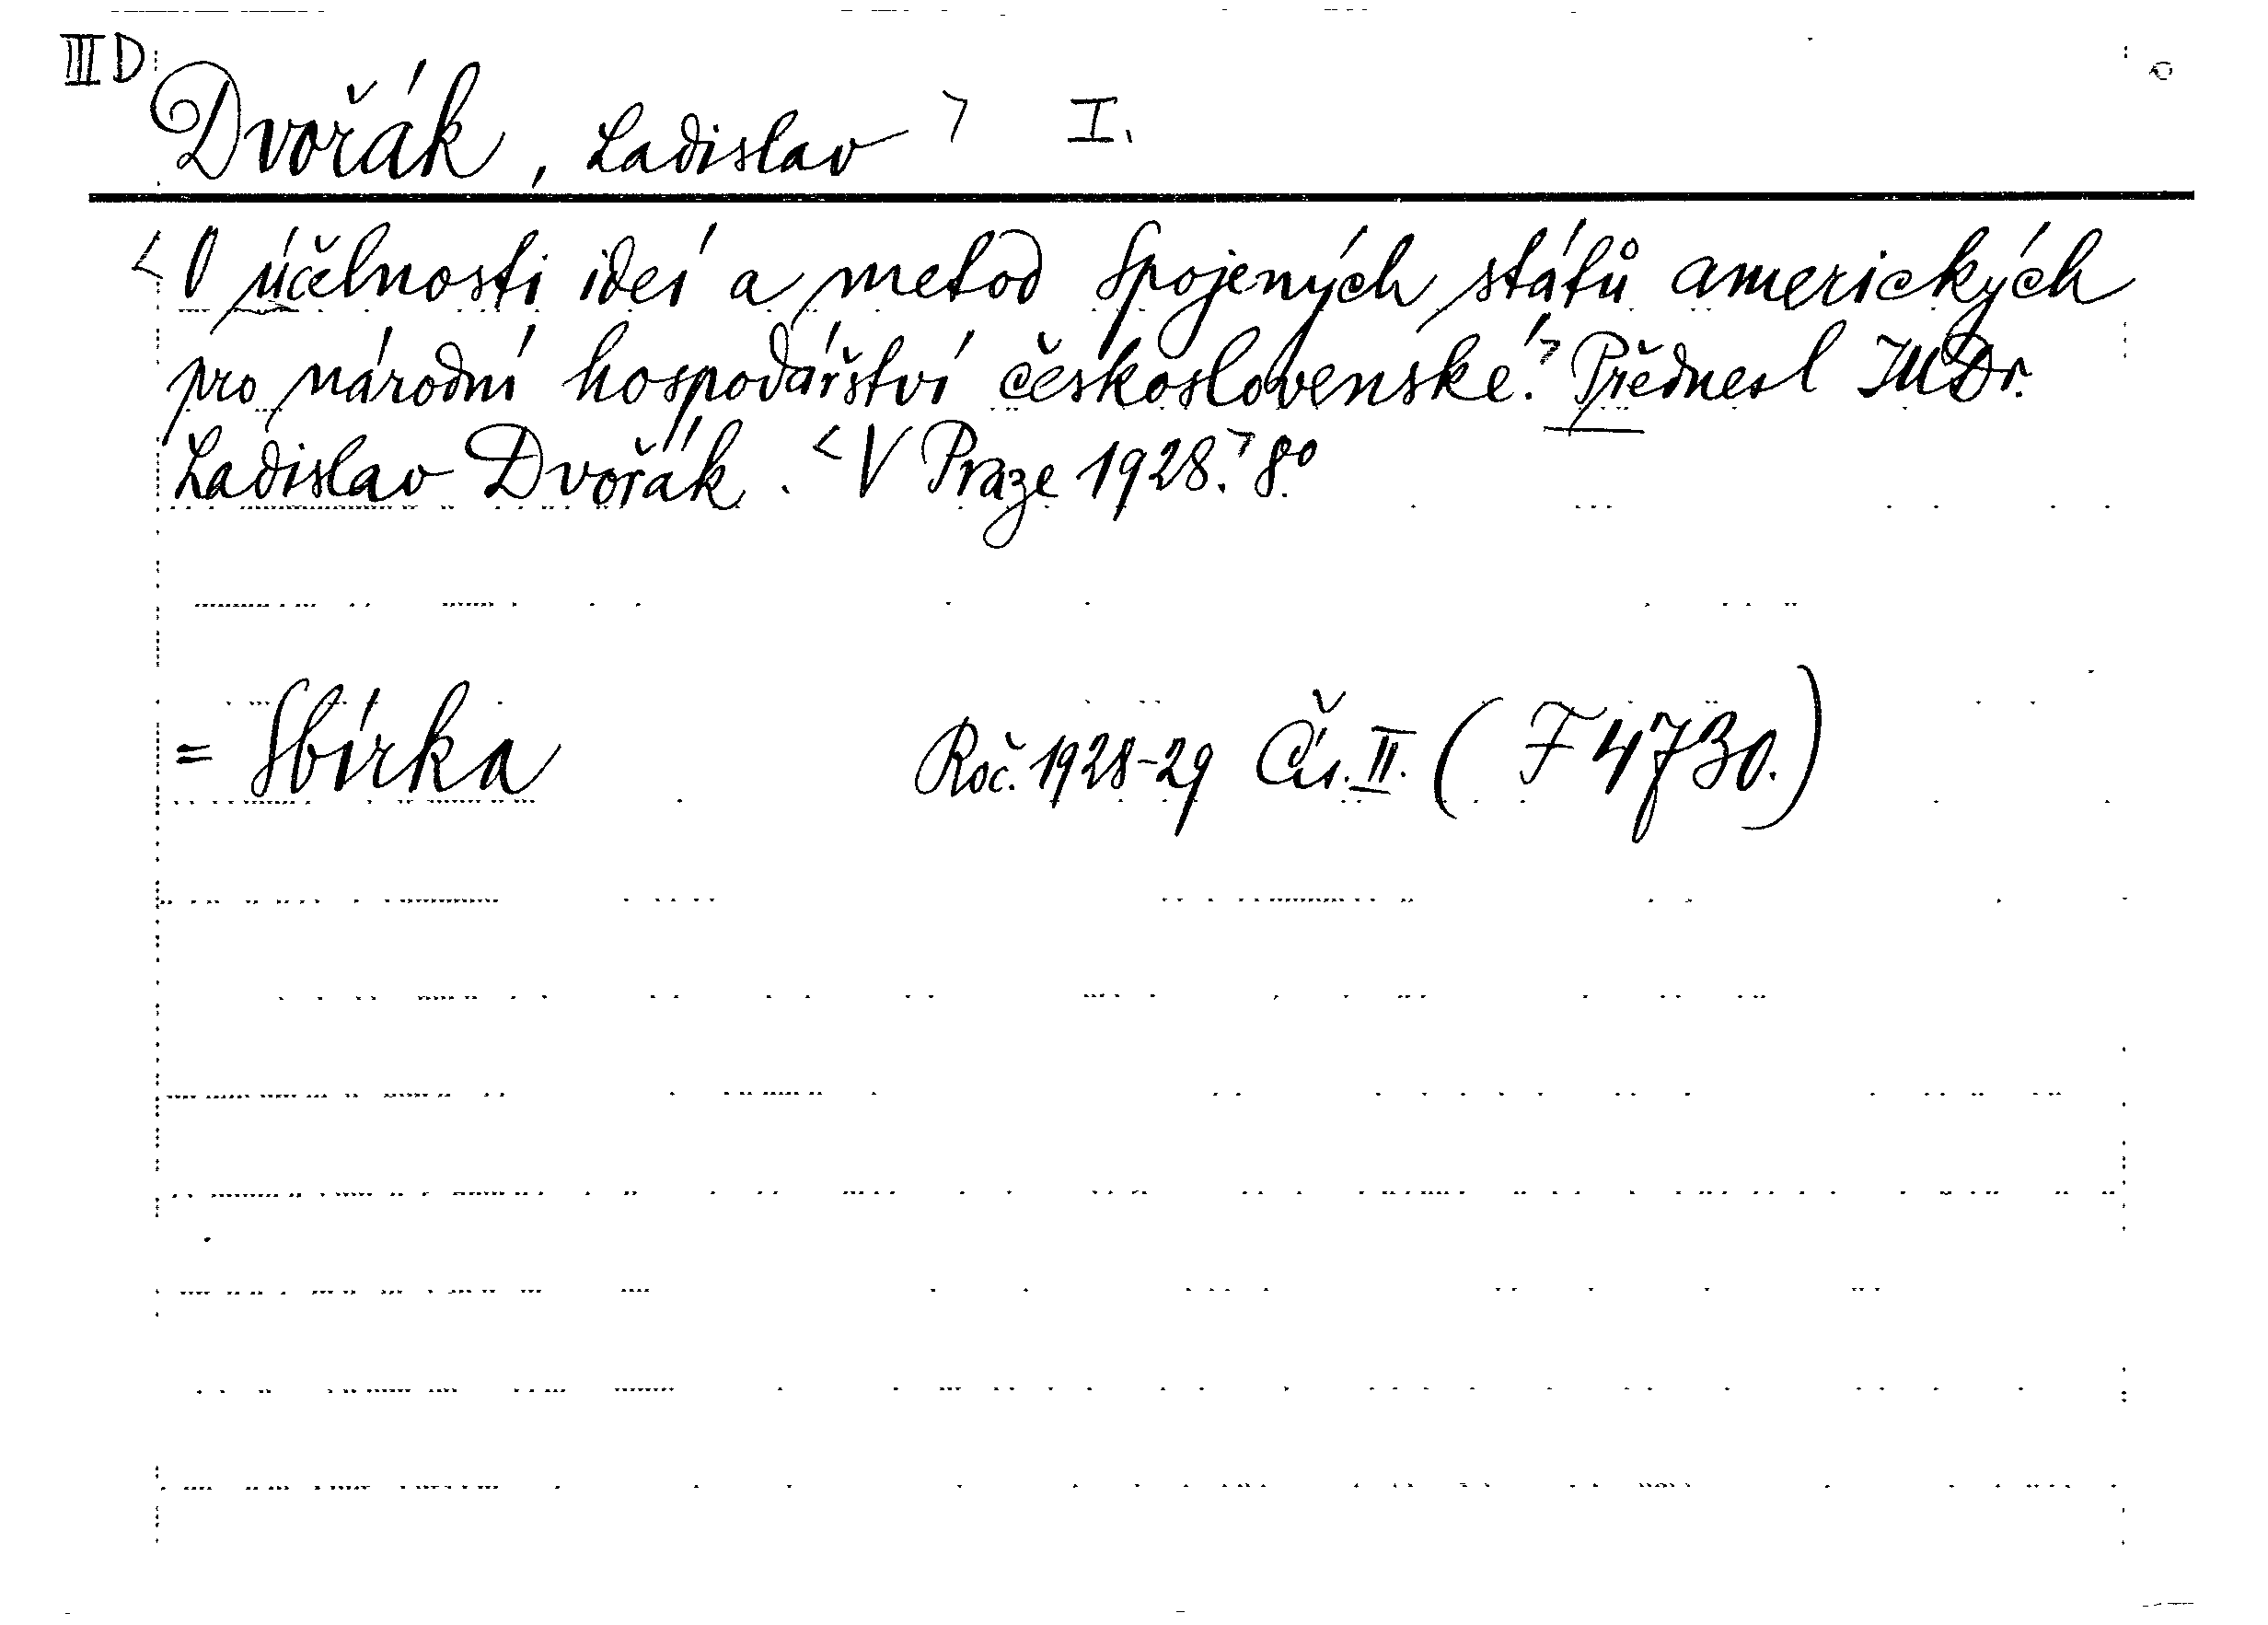 III D
Dvořák, Ladislav > I.
< O účelnosti ideí a metod Spojených států amerických
pro národní hospodářství československé.> Přednesl JUDr.
Ladislav Dvořák. < V Praze 1928.> 8°
= Sbírka Roč. 1928-29 Čís. II. ( F 4730.)